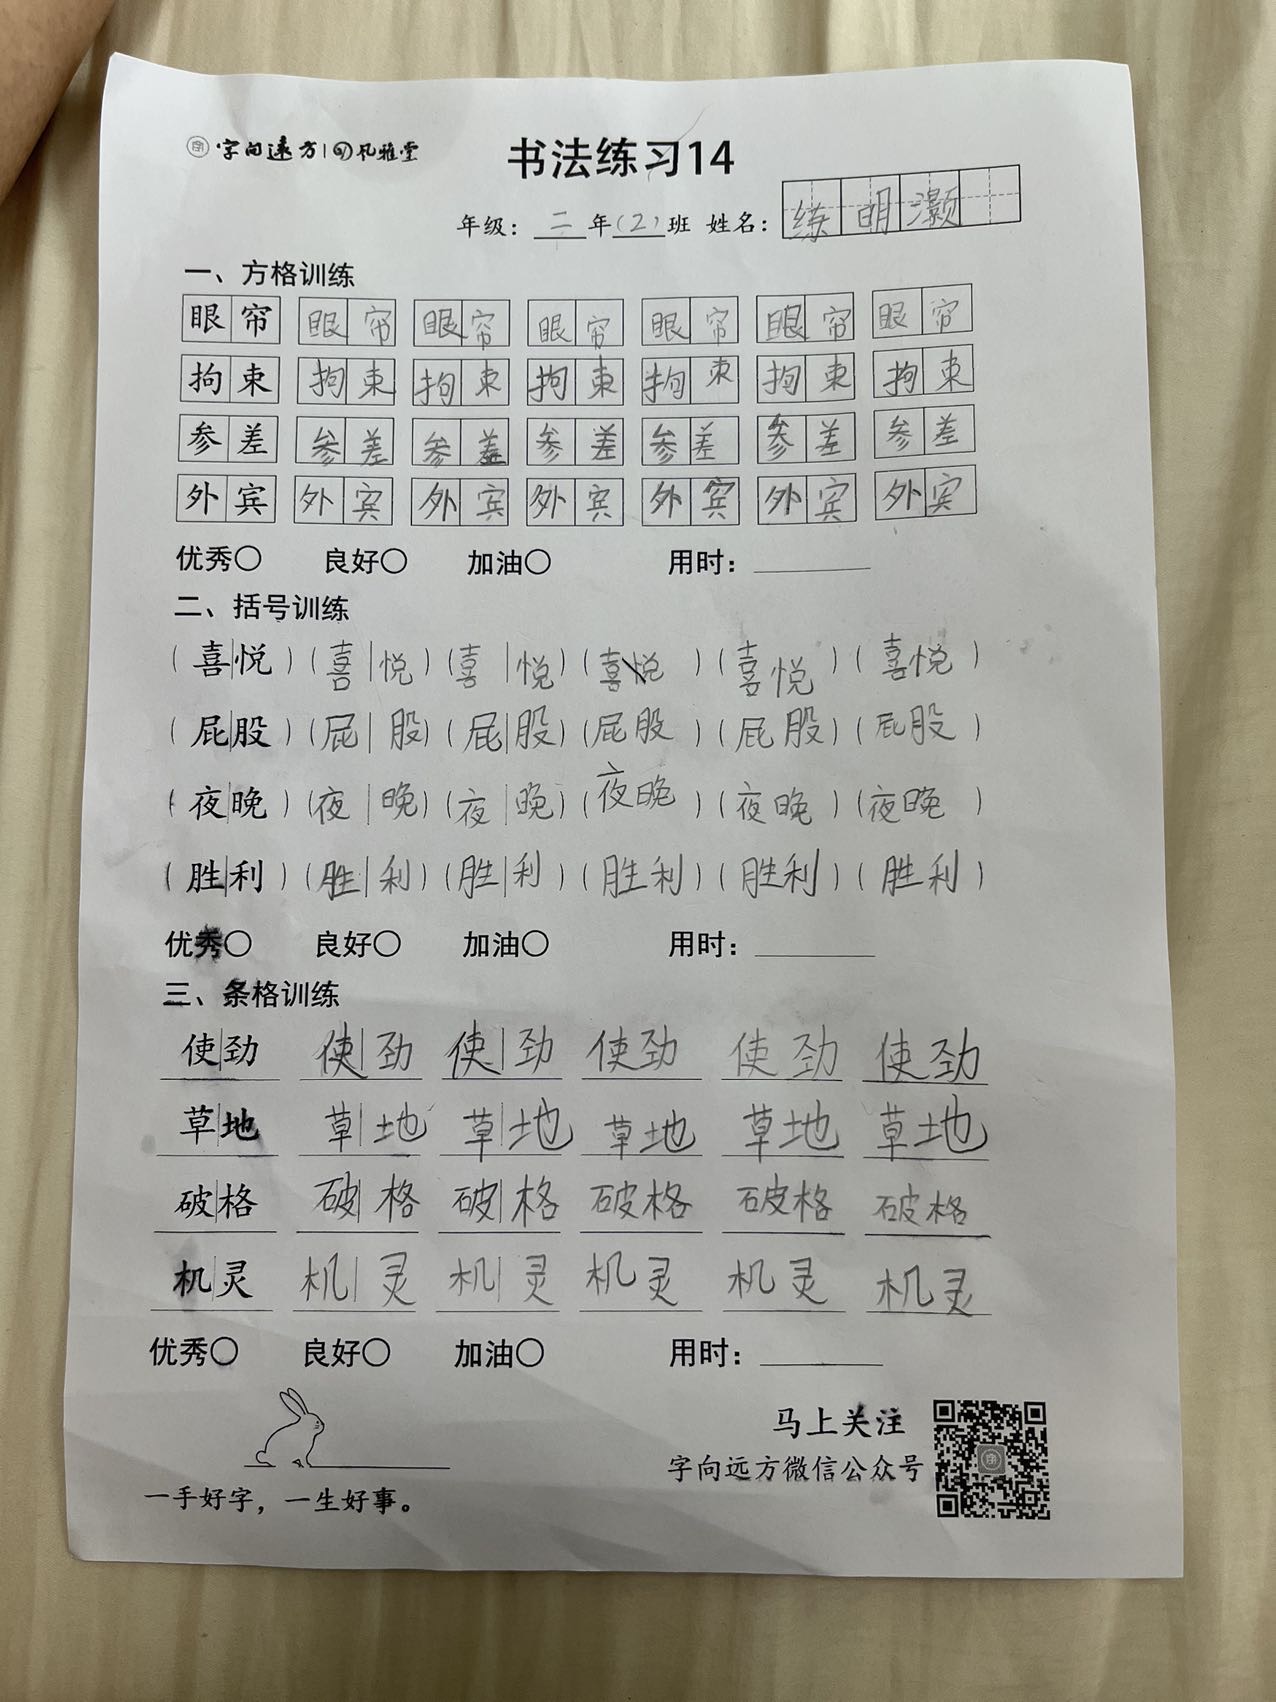 字向远方 风雅堂
书法练习14
年级：二年（2）班 姓名：练明灏
一、方格训练
眼帘 眼帘 眼帘 眼帘 眼帘 眼帘 眼帘
拘束 拘束 拘束 拘束 拘束 拘束 拘束
参差 参差 参差 参差 参差 参差 参差
外宾 外宾 外宾 外宾 外宾 外宾 外宾
优秀○ 良好○ 加油○ 用时：
二、括号训练
（喜|悦）（喜|悦）（喜|悦）（喜悦）（喜悦）（喜悦）
（屁|股）（屁|股）（屁|股）（屁股）（屁股）（屁股）
（夜|晚）（夜|晚）（夜|晚）（夜晚）（夜晚）（夜晚）
（胜|利）（胜|利）（胜|利）（胜利）（胜利）（胜利）
优秀○ 良好○ 加油○ 用时：
三、条格训练
使|劲 使|劲 使|劲 使劲 使劲 使劲
草|地 草|地 草|地 草地 草地 草地
破|格 破|格 破|格 破格 破格 破格
机|灵 机|灵 机|灵 机灵 机灵 机灵
优秀○ 良好○ 加油○ 用时：
马上关注
字向远方微信公众号
一手好字，一生好事。